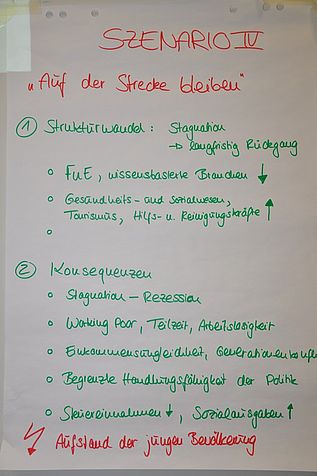 SZENARIO IV
„Auf der Strecke bleiben"
① Strukturwandel: Stagnation
→ langfristig Rückgang
○ FuE, wissensbasierte Branchen ↓
○ Gesundheits- und Sozialwesen,
Tourismus, Hilfs- u. Reinigungskräfte ↑
○
② Konsequenzen
○ Stagnation – Rezession
○ Working Poor, Teilzeit, Arbeitslosigkeit
○ Einkommensungleichheit, Generationenkonfl
○ Begrenzte Handlungsfähigkeit der Politik
○ Steuereinnahmen ↓, Sozialausgaben ↑
Aufstand der jungen Bevölkerung